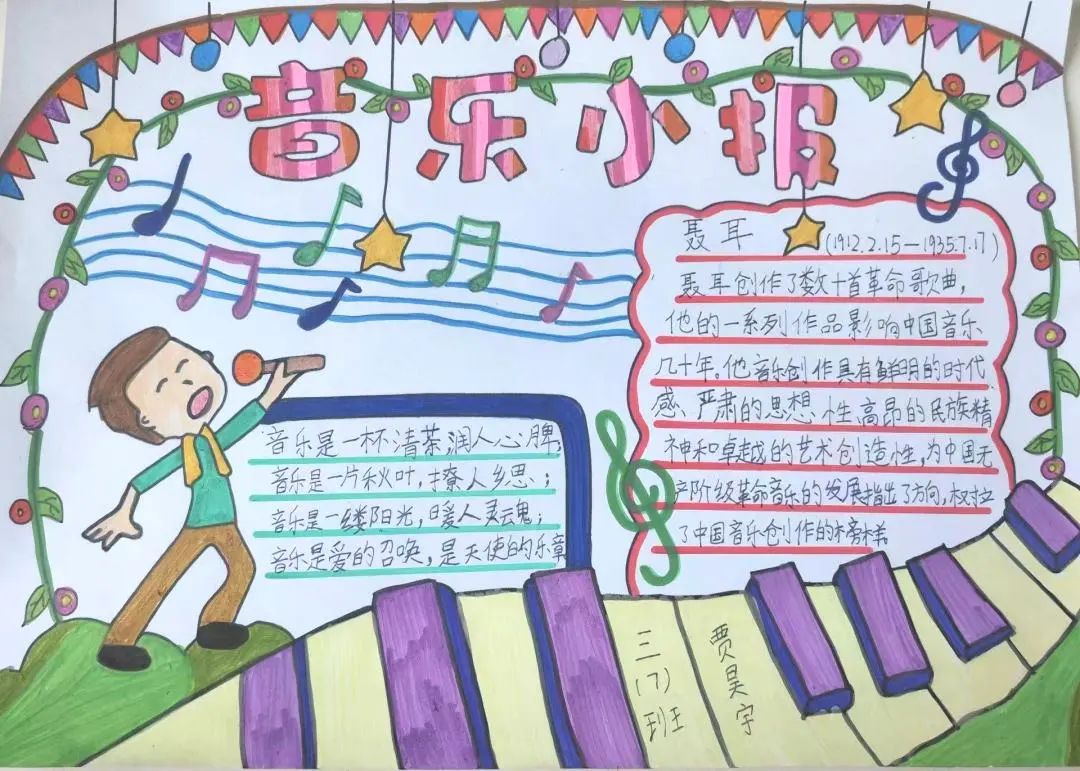 音乐小报
聂耳
(1912.2.15—1935.7.17)
聂耳创作了数十首革命歌曲,
他的一系列作品影响中国音乐
几十年。他音乐创作具有鲜明的时代
感、严肃的思想性高昂的民族精
神和卓越的艺术创造性,为中国无
产阶级革命音乐的发展指出了方向,权拉
了中国音乐创作的榜样
音乐是一杯清茶,润人心脾;
音乐是一片秋叶,撩人乡思;
音乐是一缕阳光,暖人灵魂;
音乐是爱的召唤,是天使的乐章
三(7)班
贾昊宇